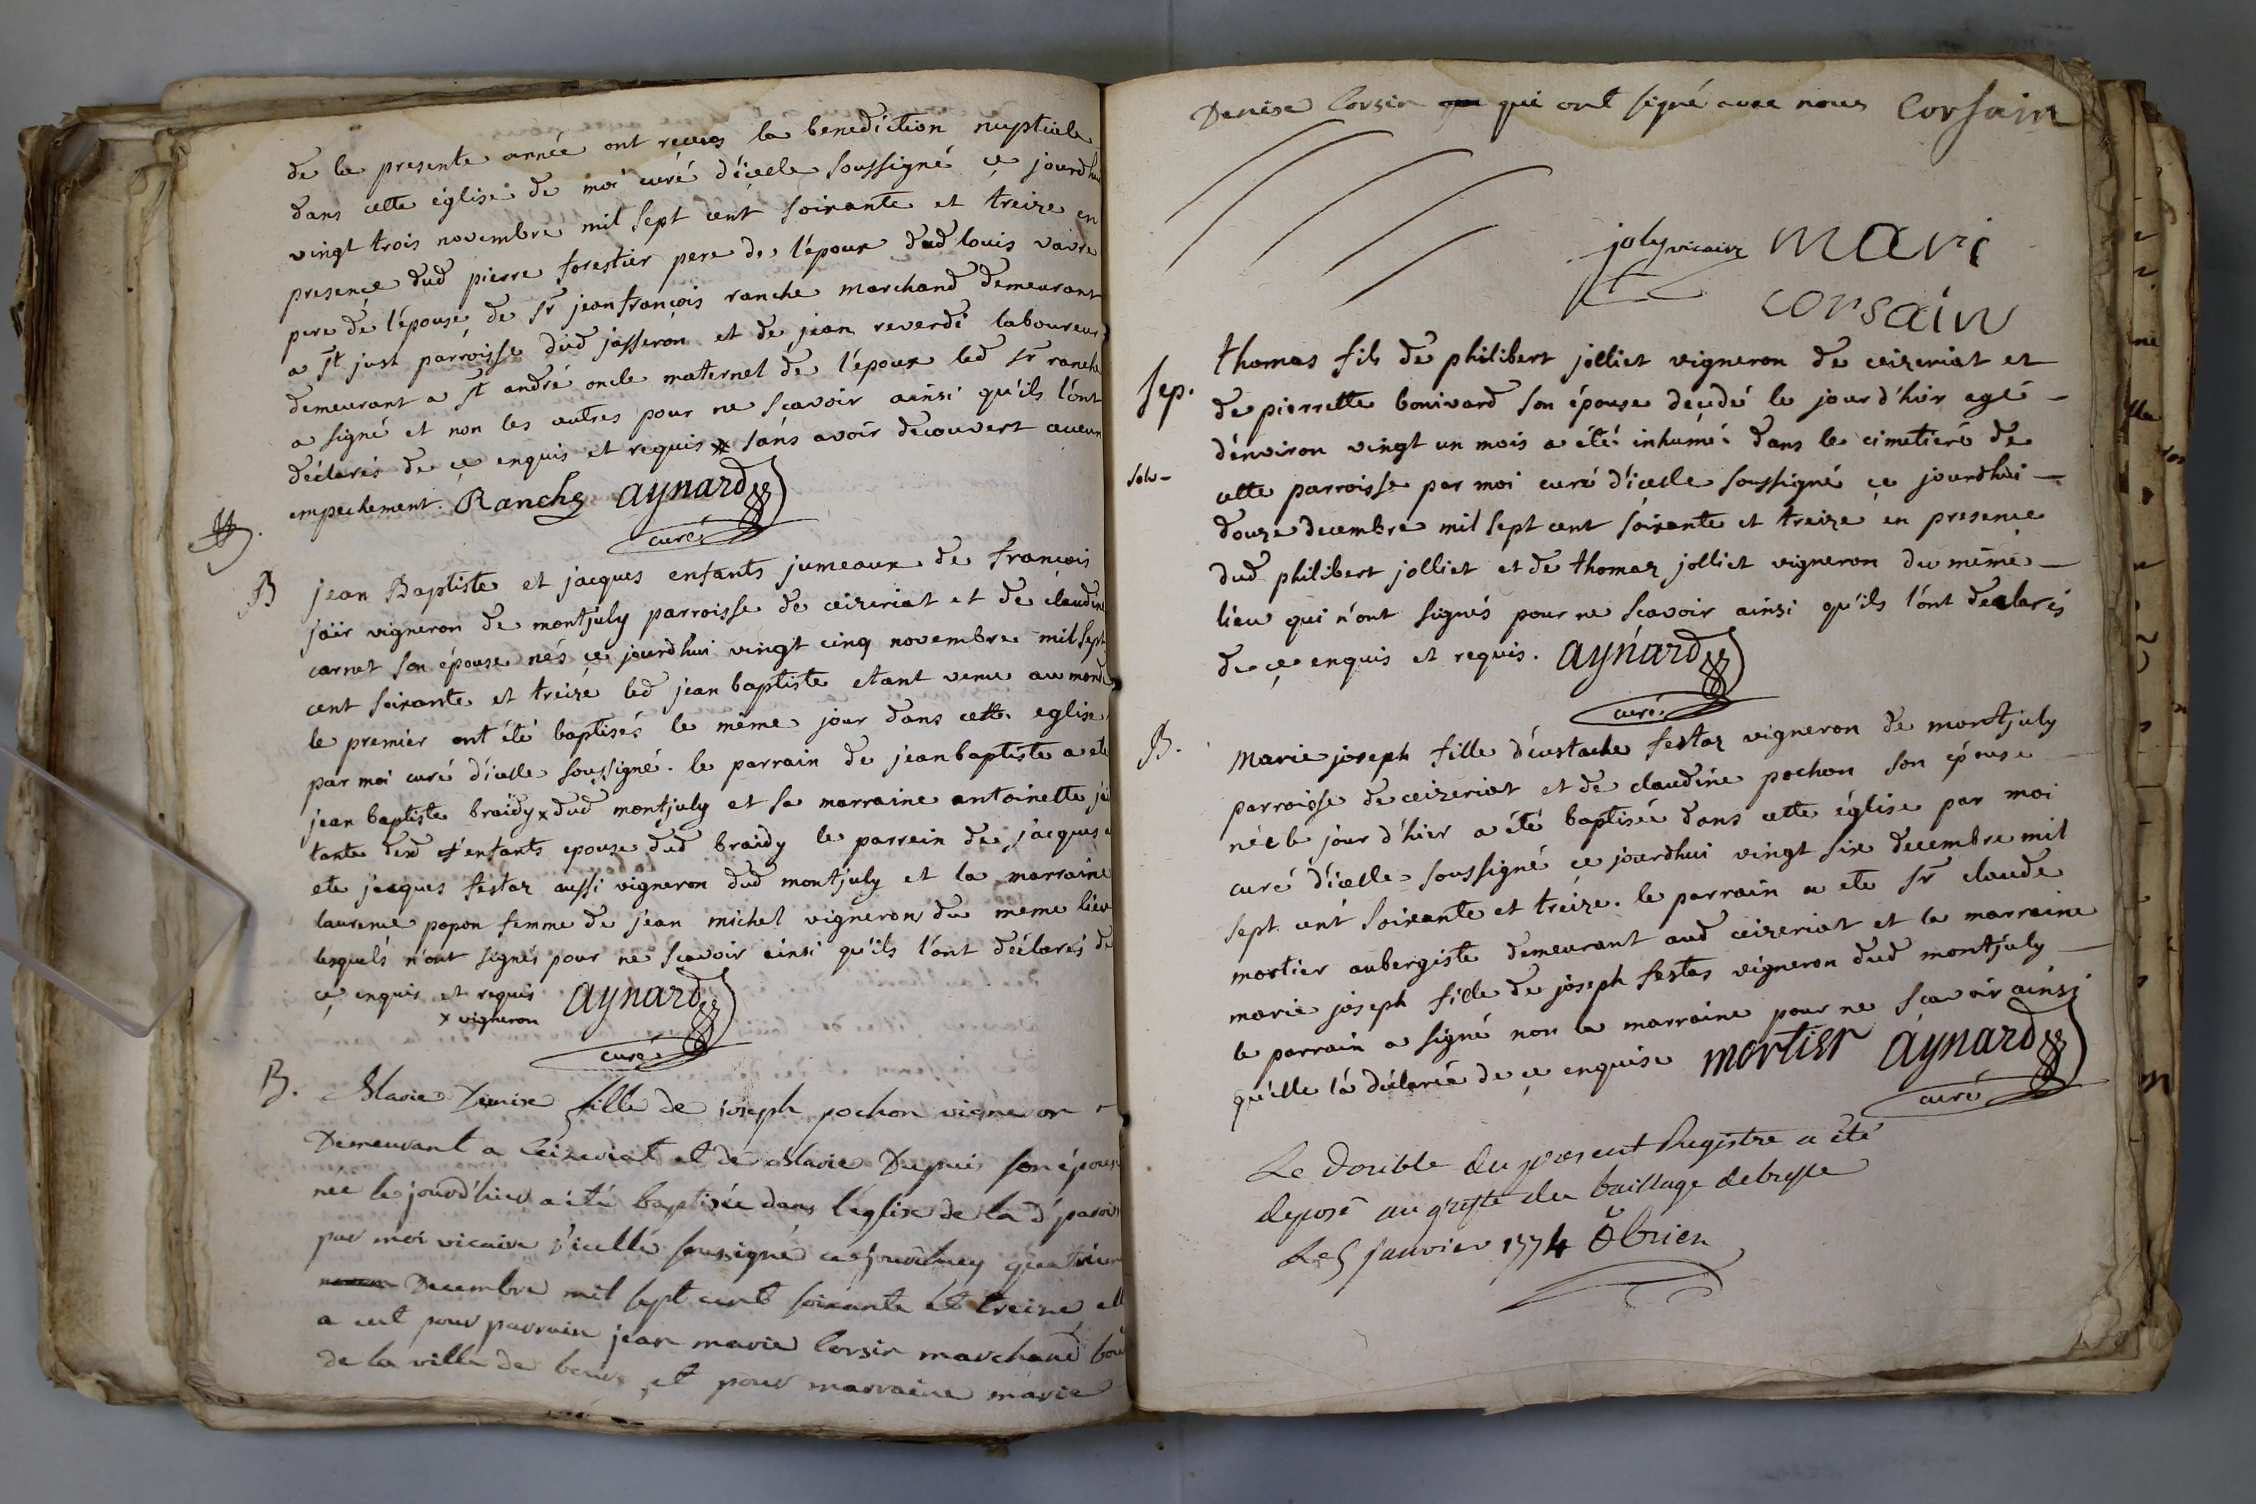 de la presente année ont reçus la benediction nuptiale
dans cette église de moi curé d'icelle soussigné ce jourdhui
vingt trois novembre mil sept cent soixante et treize en
presence dud pierre forestier pere de l'époux dud louis vavre
pere de l'épouse de sr jean françois ranche marchand demeurant
a st just parroisse dud jasseron et de jean reverdi laboureur
demeurant a st andré oncle maternel de l'époux led sr ranche
a signé et non les autres pour ne scavoir ainsi qu'ils l'ont
déclarés de ce enquis et requis x sans avoir decouvert aucun
empechement. Ranche aynard
curé
B jean Baptiste et jacques enfants jumeaux de françois
jair vigneron de montjuly parroisse de ceizeriat et de claudine
carnet son épouse nés ce jourdhui vingt cinq novembre mil sept
cent soixante et treize led jean baptiste etant venu au monde
le premier ont été baptisés le même jour dans cette eglise
par moi curé d'icelle soussigné. le parrain de jean baptiste a ete
jean baptiste braidy x dud montjuly et sa marraine antoinette
tante desd enfants epouse dud braidy le parrein de jacques
ete jacques festaz aussi vigneron dud montjuly et la marraine
laurence popon femme de jean michel vigneron du meme lieu
lesquels n'ont signés pour ne scavoir ainsi qu'ils l'ont déclarés de
ce enquis et requis aynard
x vigneron
curé
B. Marie Denise fille de joseph pochon vigneron
Demeurant a Ceizeriat et de Marie Dupuis son épouse
née le jourd'hier a été baptisée dans l'eglise de la d parois
par moi vicaire d'icelle soussigné ce jourdhuy quatrieme
Decembre mil sept cent soixante et treize elle
a eut pour parrain jean marie Corsin marchand
de la ville de bourg et pour marraine marie
Denise Corsin qui ont signé avec nous Corsain
joly vicaire mari
corsain
Sep. thomas fils de philibert jolliet vigneron de ceizeriat et
de pierrette bonivard son épouse décédé le jour d'hier agé
d'environ vingt un mois a été inhumé dans le cimetiere de
solv- cette parroisse par moi curé d'icelle soussigné ce jourdhui
douze decembre mil sept cent soixante et treize en presence
dud philibert jolliet et de thomaz jolliet vigneron du même
lieu qui n'ont signés pour ne scavoir ainsi qu'ils l'ont declarés
de ce enquis et requis. aynard
curé.
B. Marie joseph fille d'eustache festaz vigneron de montjuly
parroisse de ceizeriat et de claudine pochon son épouse
née le jour d'hier a été baptisée dans cette église par moi
curé d'icelle soussigné ce jourdhui vingt six decembre mil
sept cent soixante et treize. le parrain a ete sr claude
mortier aubergiste demeurant aud ceizeriat et la marraine
marie joseph fille de joseph festas vigneron dud montjuly
le parrain a signé non la marraine pour ne scavoir ainsi
qu'elle l'a déclarée de ce enquise mortier aynard
curé
Le Double du present Registre a été
deposé au greffe du bailliage debresse
Le 5 janvier 1774 Obrien